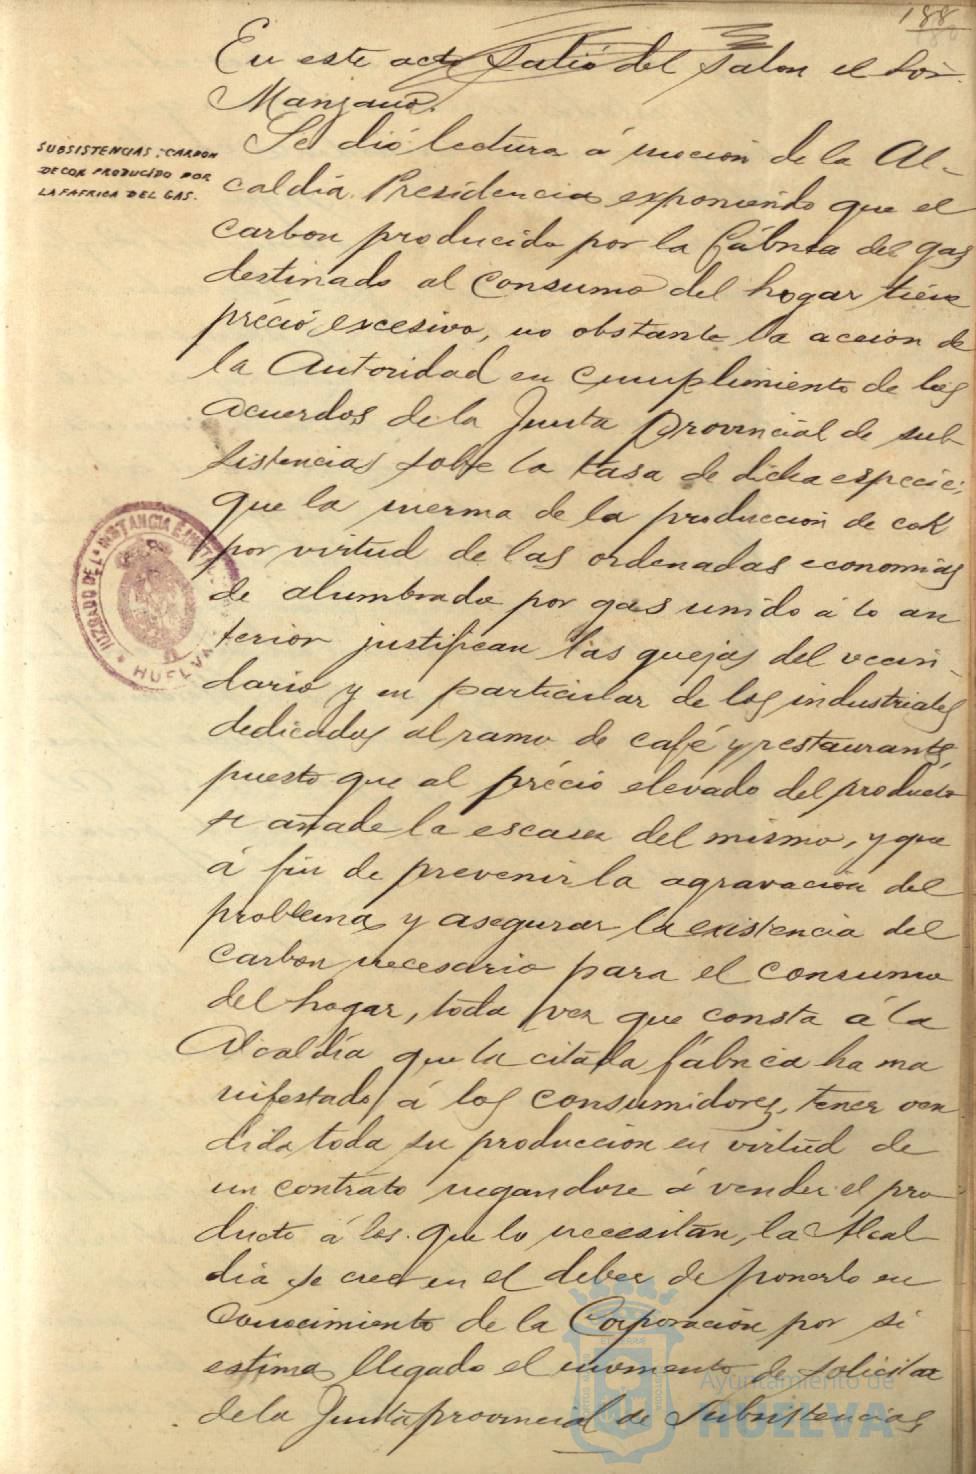 188
En este acto salió del salon el Sor.
Manzano.
SUBSISTENCIAS: CARBON
DE COK PRODUCIDO POR
LA FAFRICA DEL GAS.
Se dió lectura á moción de la Al-
caldía Presidencia exponiendo que el
carbon producido por la fábrica del gas
destinado al consumo del hogar tiene
précio excesivo, no obstante la accion de
la Autoridad en cumplimiento de los
acuerdos de la Junta Provincial de sub
sistencias sobre la tasa de dicha especie;
que la merma de la produccion de cok
por virtud de las ordenadas economias
de alumbrado por gas unido á lo an
terior justifican las quejas del vecin-
dario y en particular de los industriales
dedicados al ramo de café y restaurants,
puesto que al précio elevado del producto
se añade la escasez del mismo, y que
á fin de prevenir la agravacion del
problema y asegurar la existencia del
carbon necesario para el consumo
del hogar, toda vez que consta á la
Alcaldía que la citada fábrica ha ma
nifestado á los consumidores, tener ven
dida toda su produccion en virtud de
un contrato negandose á vender el pro
ducto á los que lo necesitan, la Alcal
dia se cree en el deber de ponerlo en
conocimiento de la Corporación por si
estima llegado el momento de solicitar
de la Junta provincial de Subsistencias
JUZGADO DE 1ª INSTANCIA É INST
HUELVA
Ayuntamiento de
HUELVA